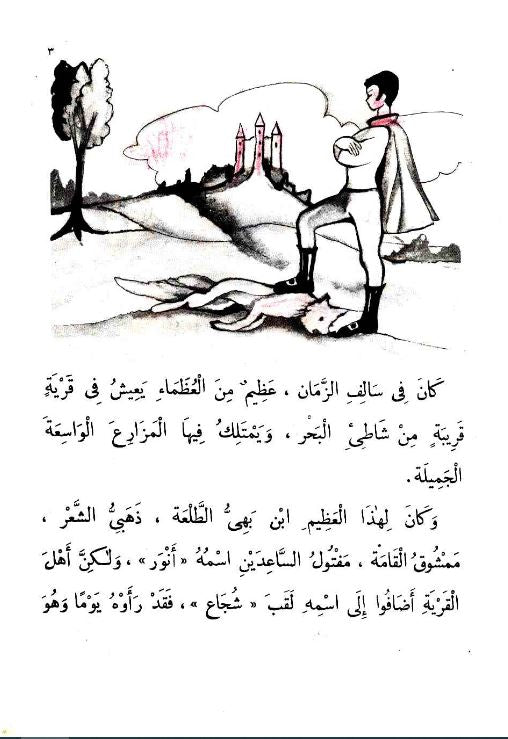 ٣
كَانَ فِي سَالِفِ الزَّمَان ، عَظِيمٌ مِنَ الْعُظَمَاءِ يَعِيشُ فِي قَرْيَةٍ
قَرِيبَةٍ مِنْ شَاطِئِ الْبَحْر ، وَيَمْتَلِكُ فِيهَا الْمَزَارِعَ الْوَاسِعَةَ
الْجَمِيلَة .
وَكَانَ لِهٰذَا الْعَظِيمِ ابْن بَهِيُّ الطَّلْعَة ، ذَهَبِيُّ الشَّعْر ،
مَمْشُوقُ الْقَامَة ، مَفْتُولُ السَّاعِدَيْنِ اسْمُهُ « أَنْوَر » ، وَلٰكِنَّ أَهْلَ
الْقَرْيَةِ أَضَافُوا إِلَى اسْمِهِ لَقَبَ « شُجَاع » ، فَقَدْ رَأَوْهُ يَوْمًا وَهُوَ